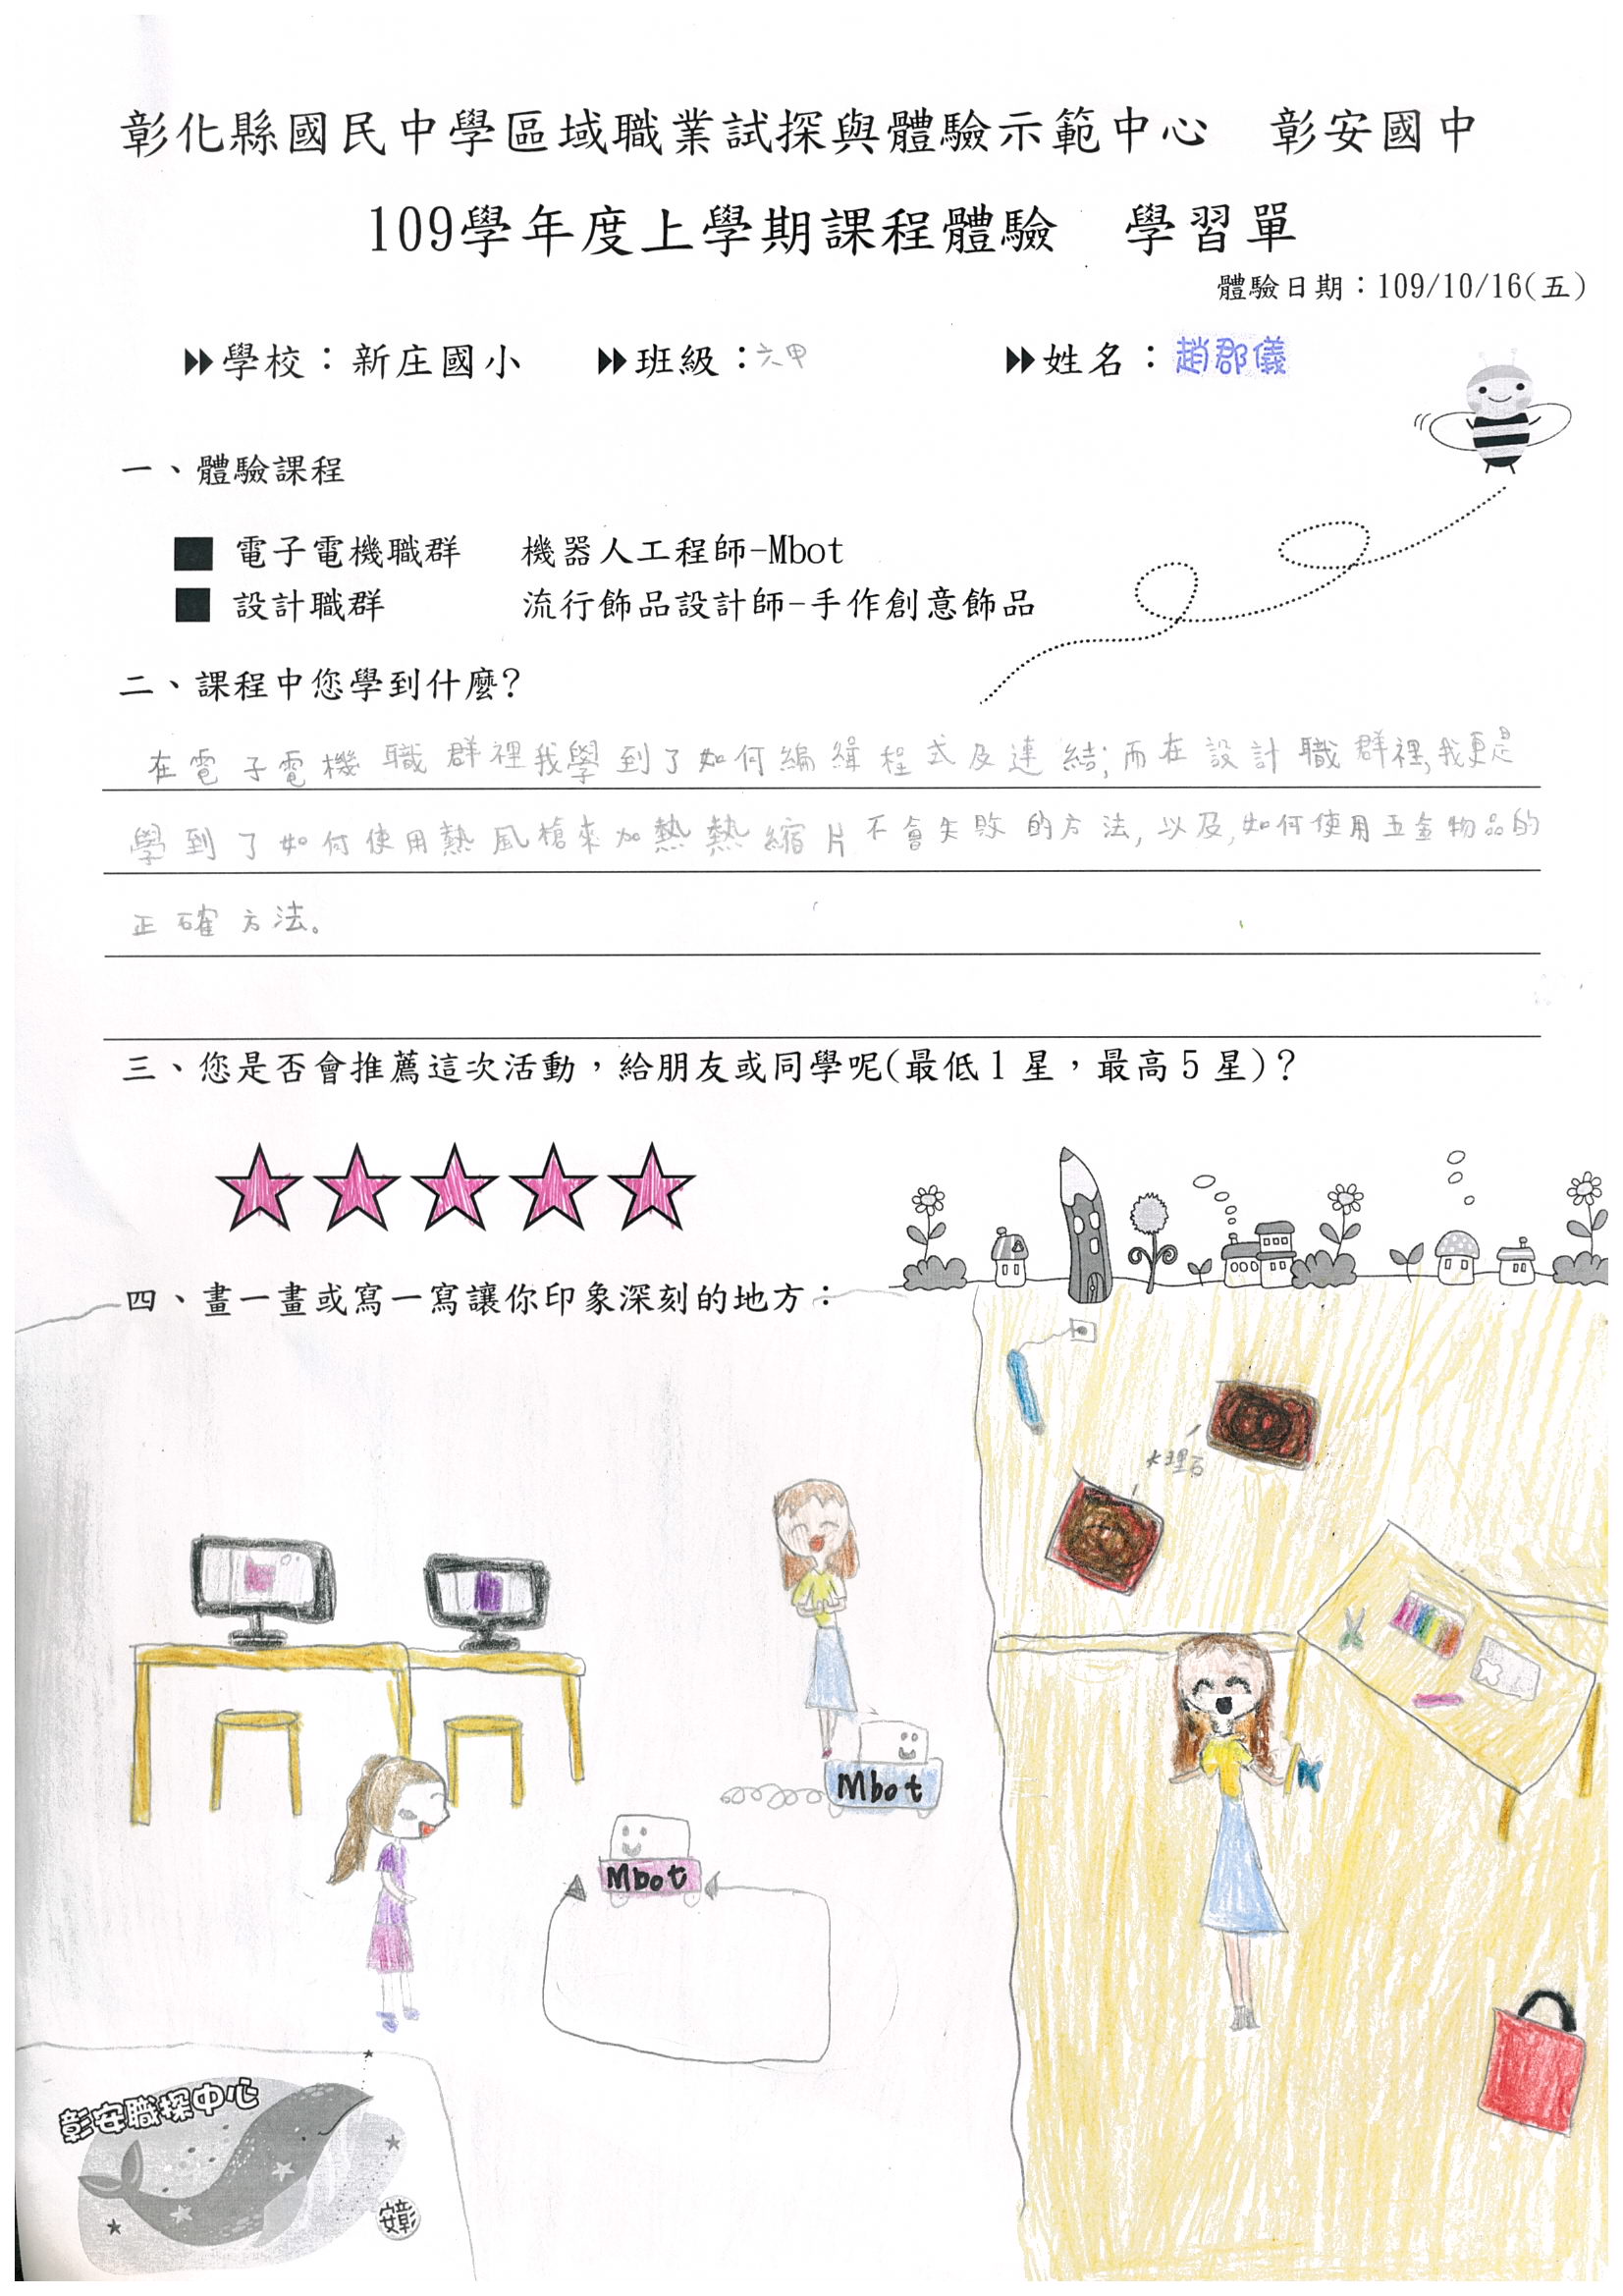 彰化縣國民中學區域職業試探與體驗示範中心　彰安國中
109學年度上學期課程體驗　學習單
體驗日期：109/10/16(五)
學校：新庄國小　班級：六甲　姓名：趙郡儀
一、體驗課程
■ 電子電機職群　機器人工程師-Mbot
■ 設計職群　流行飾品設計師-手作創意飾品
二、課程中您學到什麼?
在電子電機職群裡我學到了如何編緝程式及連結;而在設計職群裡,我更是
學到了如何使用熱風槍來加熱熱縮片不會失敗的方法,以及,如何使用五金物品的
正確方法。
三、您是否會推薦這次活動，給朋友或同學呢(最低1星，最高5星)？
四、畫一畫或寫一寫讓你印象深刻的地方：
大理石
Mbot
Mbot
彰安職探中心
彰安